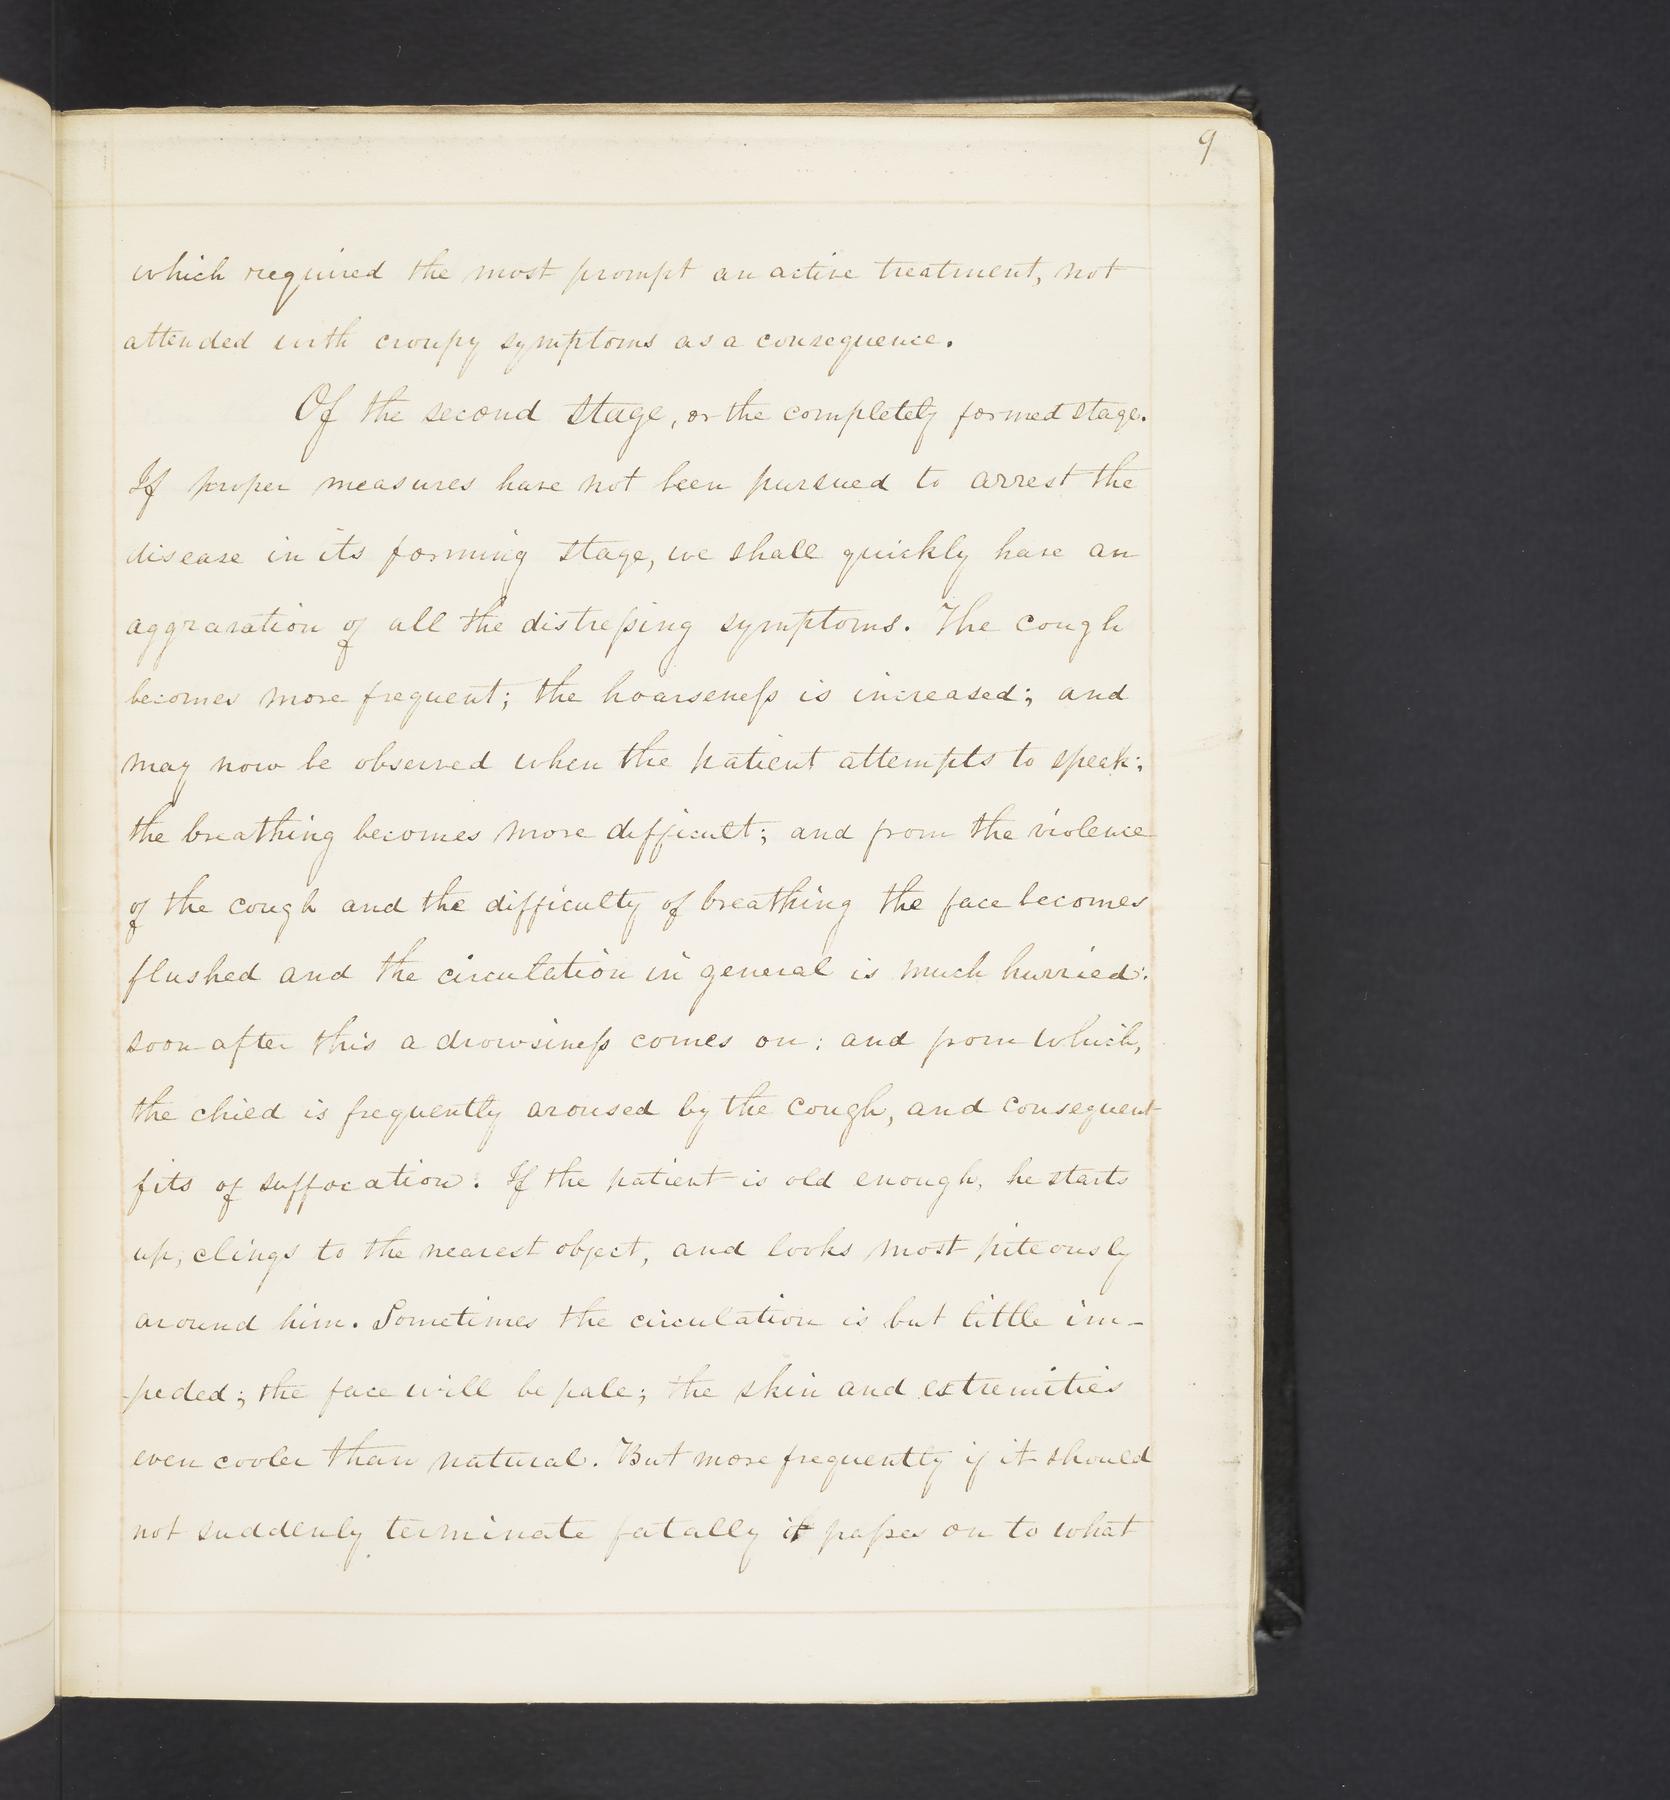 9
which required the most prompt an active treatment, not
attended with croupy symptoms as a consequence.
Of the second stage, or the completely formed stage.
If proper measures have not been pursued to arrest the
disease in its forming stage, we shall quickly have an
aggravation of all the distreſsing symptoms. The cough
becomes more frequent; the hoarseneſs is increased; and
may now be observed when the patient attempts to speak;
the breathing becomes more difficult; and from the violence
of the cough and the difficulty of breathing the face becomes
flushed and the circulation in general is much hurried:
soon after this a drowsineſs comes on: and from which,
the child is frequently aroused by the cough, and consequent
fits of suffocation. If the patient is old enough, he starts
up, clings to the nearest object, and looks most piteously
around him. Sometimes the circulation is but little im-
-peded; the face will be pale; the skin and extremities
even cooler than natural. But more frequently if it should
not suddenly terminate fatally it paſses on to what